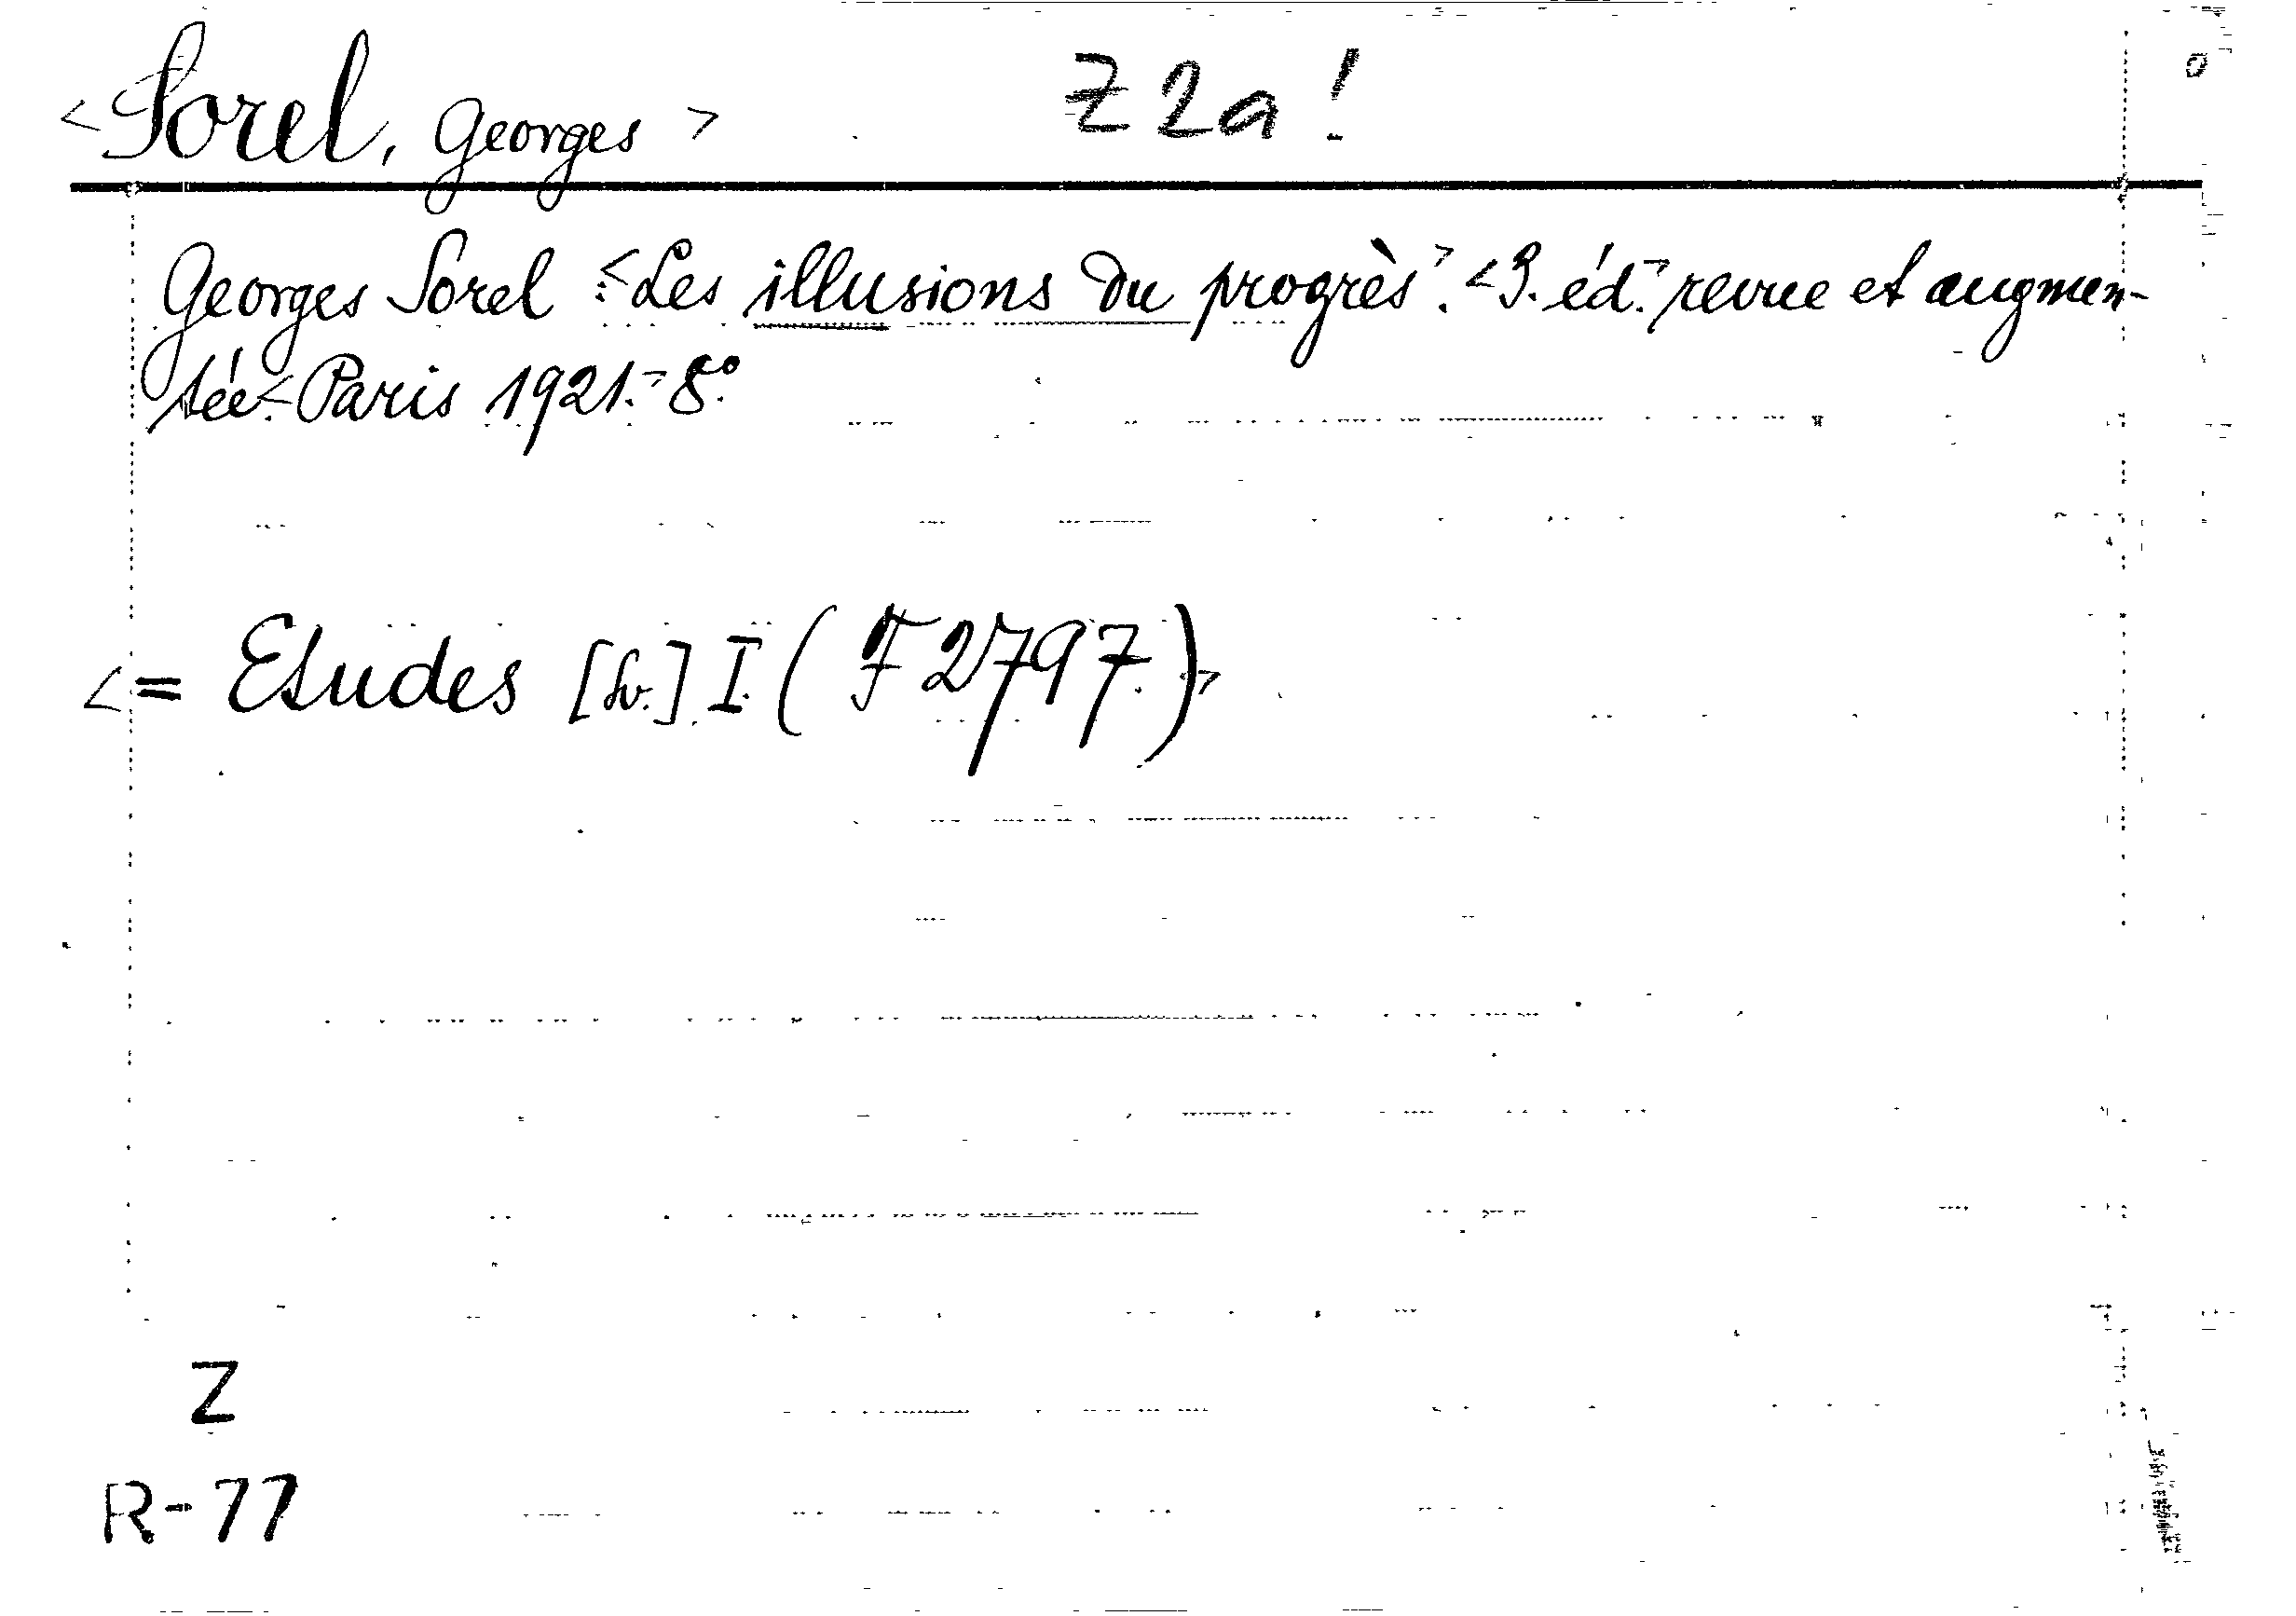 <Sorel, Georges> Z 2a!
Georges Sorel: <Les illusions du progrès>. <3. éd.> revue et augmen-
tée. <Paris 1921.> 8°.
<= Etudes [...] I. (F 2797.)>
Z
R-77